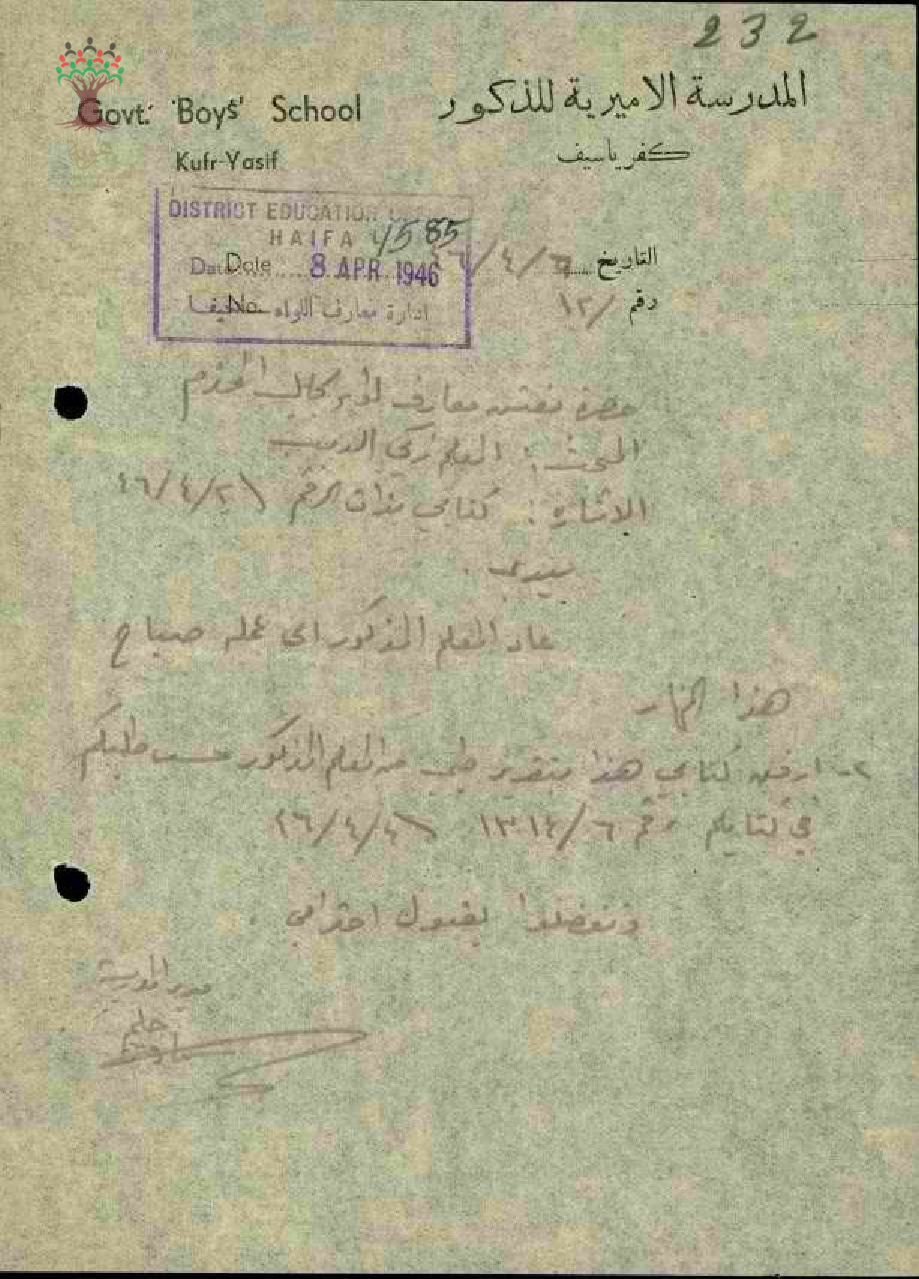 232
Govt. Boys' School المدرسة الاميرية للذكور
Kufr-Yasif كفر ياسيف
DISTRICT EDUCATION
HAIFA 4585
Date 8 APR 1946
Date
No.
ادارة معارف اللواء حيفا
التاريخ ٦/٤/٤٦
رقم ١٢/
حضرة مفتش معارف لواء الجليل المحترم
المبحث: المعلم زكي الديب
الاشارة: كتابي بذات الرقم ٤٦/٤/٢
سيدي
عاد المعلم المذكور الى عمله صباح
هذا النهار
٢- ارفق كتابي هذا بتقرير طبي من المعلم المذكور حسب طلبكم
في كتابكم رقم ٤٦/٤/٤
وتفضلوا بقبول احترامي
مدير المدرسة